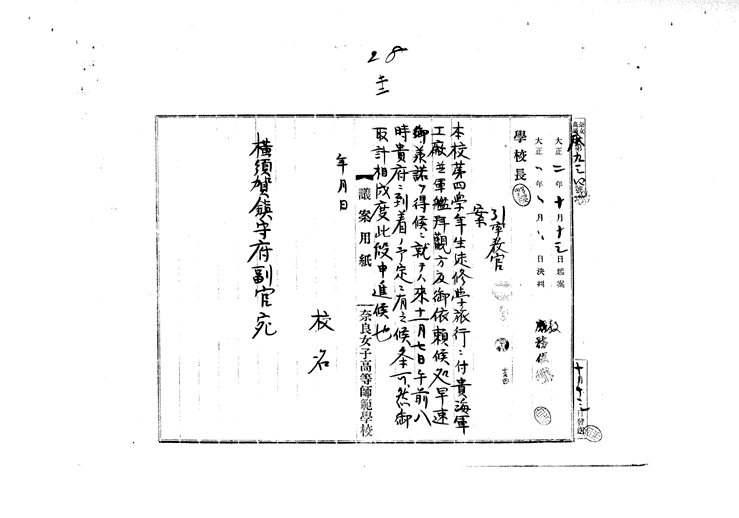 28
奈女高第 庶九三八號
大正二年十月十三日起案
大正 年 月 日決判
學校長
引率教官
教
庶務係
十月十三日發送
案
本校第四學年生徒修學旅行ニ付貴海軍
工廠並軍艦拜觀方及御依賴候処早速
御承諾ヲ得候ニ就テハ來十一月七日午前八
時貴府ニ到着ノ予定ニ有之候条可然御
取計相成度此段申進候也
年月日
校名
橫須賀鎭守府副官宛
議案用紙
奈良女子高等師範學校